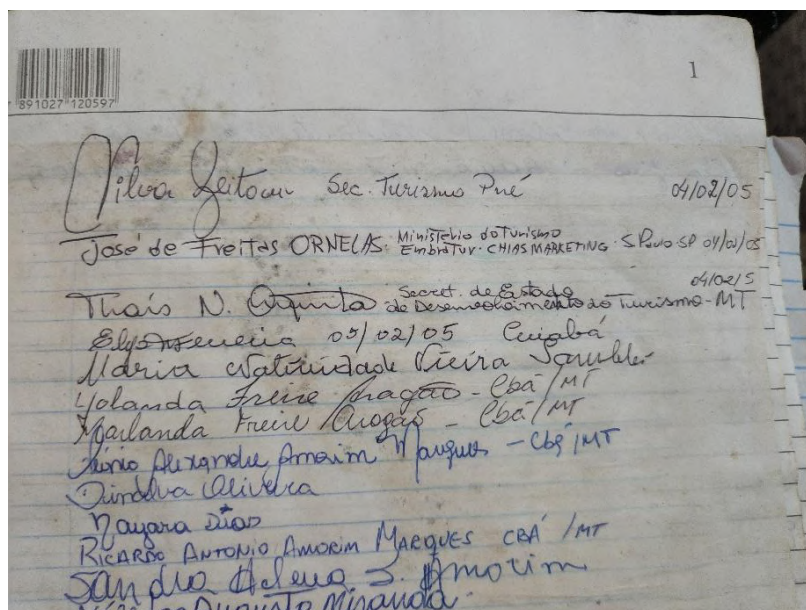 891027 120597
1
Nilva Sec. Turismo Pvé 04/02/05
José de Freitas ORNELAS. Ministério do Turismo
Embratur. CHIAS MARKETING. S Paulo-SP 04/02/05
Thaís N. Secret. de Estado 04/02/5
de Desenvolvimento do Turismo-MT
05/02/05 Cuiabá
Maria Natividade Vieira
Yolanda Freire Aragão - Cbá/MT
Marlanda Freire Aragão - Cbá/MT
Alexandre Amorim Marques - Cbá/MT
Oliveira
Nayara Dias
RICARDO ANTONIO AMORIM MARQUES CBÁ /MT
Sandra Helena S. Amorim
Augusto Miranda.